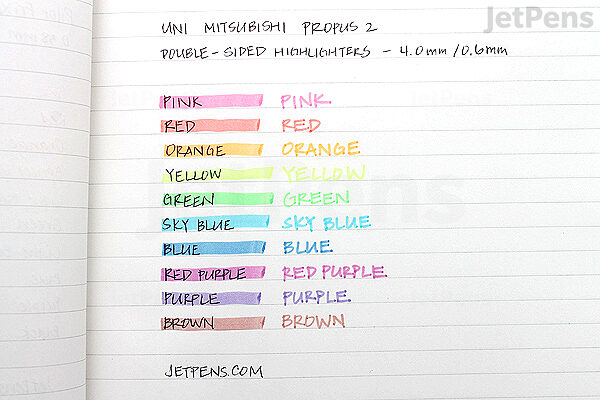 JetPens
UNI MITSUBISHI PROPUS 2
DOUBLE-SIDED HIGHLIGHTERS - 4.0mm/0.6mm
PINK PINK
RED RED
ORANGE ORANGE
YELLOW YELLOW
GREEN GREEN
SKY BLUE SKY BLUE
BLUE BLUE
RED PURPLE RED PURPLE
PURPLE PURPLE
BROWN BROWN
JETPENS.COM